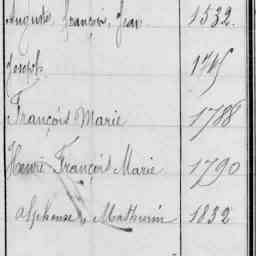 Auguste, François, Jean 1532.
Joseph 1715
François Marie 1788
Henri François Marie 1790
Alphonse Mathurin 1832